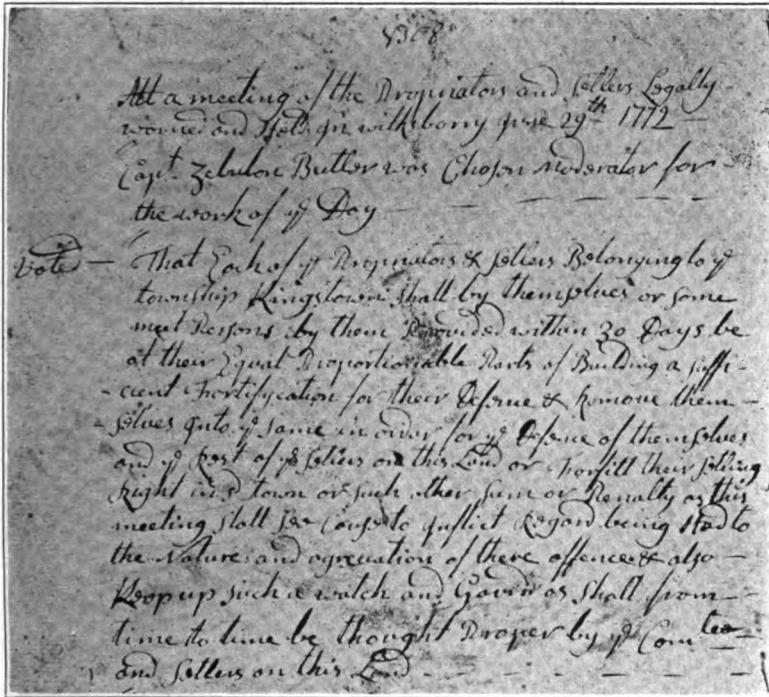 1368
Att a meeting of the Propriators and Setlers Legally
worned and Held in wilksbarry June 29th 1772
Capt. Zebulon Butler was Chosen moderator for
the work of ye Day
Voted — That Each of ye Propriators & Setlers Belonging to ye
township Kingstown Shall by themselves or some
meet Persons by them Provided within 20 Days be
at their Equal Proportionable Parts of Building a suffi-
-cient Fortifycation for their Defence & Remove them-
-selves into ye same in order for ye Defence of themselves
and ye Rest of ye Setlers on this Land or Forfitt their Setling
Right in sd town or such other Sum or Penalty as this
meeting Shall See Cause to Inflict Regard being Had to
the Nature and agrevation of there offence & also
Keep up such a watch and Gavird as Shall from
time to time be thought Proper by ye Comtee
and Setlers on this Land